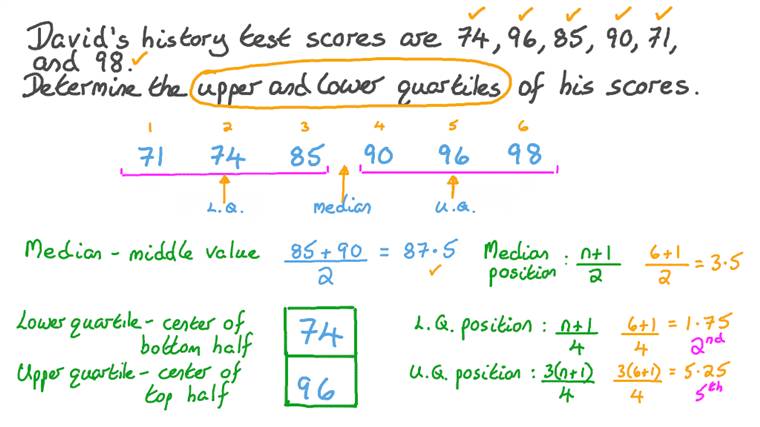 David's history test scores are 74, 96, 85, 90, 71,
and 98.
Determine the upper and lower quartiles of his scores.
1 2 3 4 5 6
71 74 85 90 96 98
L.Q. median U.Q.
Median - middle value 85+90/2 = 87.5
Median position: n+1/2 6+1/2 = 3.5
Lower quartile - center of
bottom half
74
L.Q. position: n+1/4 6+1/4 = 1.75
2nd
Upper quartile - center of
top half
96
U.Q. position: 3(n+1)/4 3(6+1)/4 = 5.25
5th